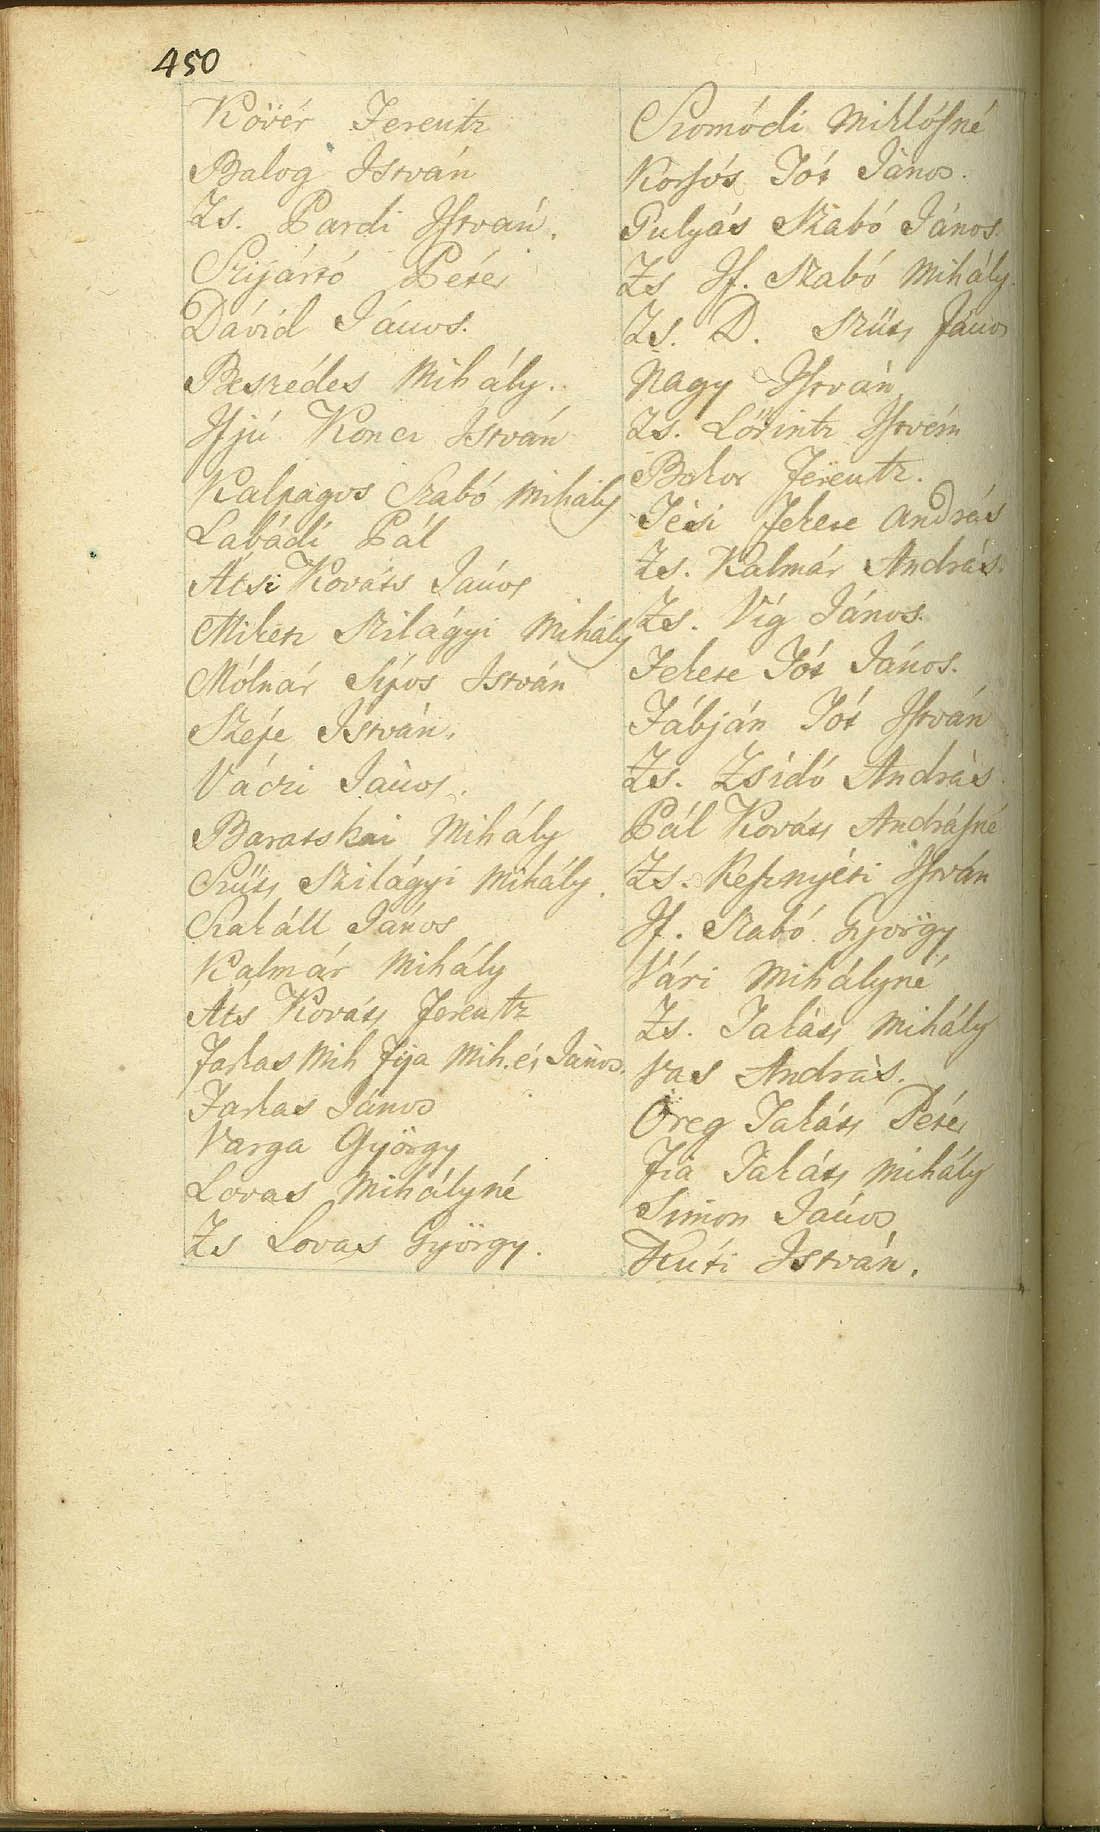 450
Kövér Ferentz
Balog István
Zs. Pardi István.
Szijártó Péter
Dávid János.
Beszédes Mihály.
Ifjú Koncz István
Kalpagos Szabó Mihály
Labádi Pál
Átsi Kováts János
Mikesz Szilágyi Mihály
Mólnár Sípos István
Szépe István.
Váczi János.
Baratskai Mihály
Szüts Szilágyi Mihály.
Szakáll János
Kalmár Mihály
Áts Kováts Ferentz
Farkas Mih fija Mih. és János.
Farkas János
Varga György
Lovas Mihályné
Zs Lovas György.
Szomódi Miklósné
Korsós Tót János.
Gulyás Szabó János.
Zs If. Szabó Mihály.
Zs. D. Szüts János
Nagy István
Zs. Lőrintz István
Bokor Ferentz.
Fekete András
Zs. Kalmár András.
Zs. Víg János.
Fekete Tót János.
Fábján Tót István
Zs. Zsidó András.
Pál Kováts Andrásné
Zs. István
If. Szabó György
Vári Mihályné
Zs. Takáts Mihály
Vas András.
Öreg Takáts Péter
Fia Takáts Mihály
Simon János
Kúti István.